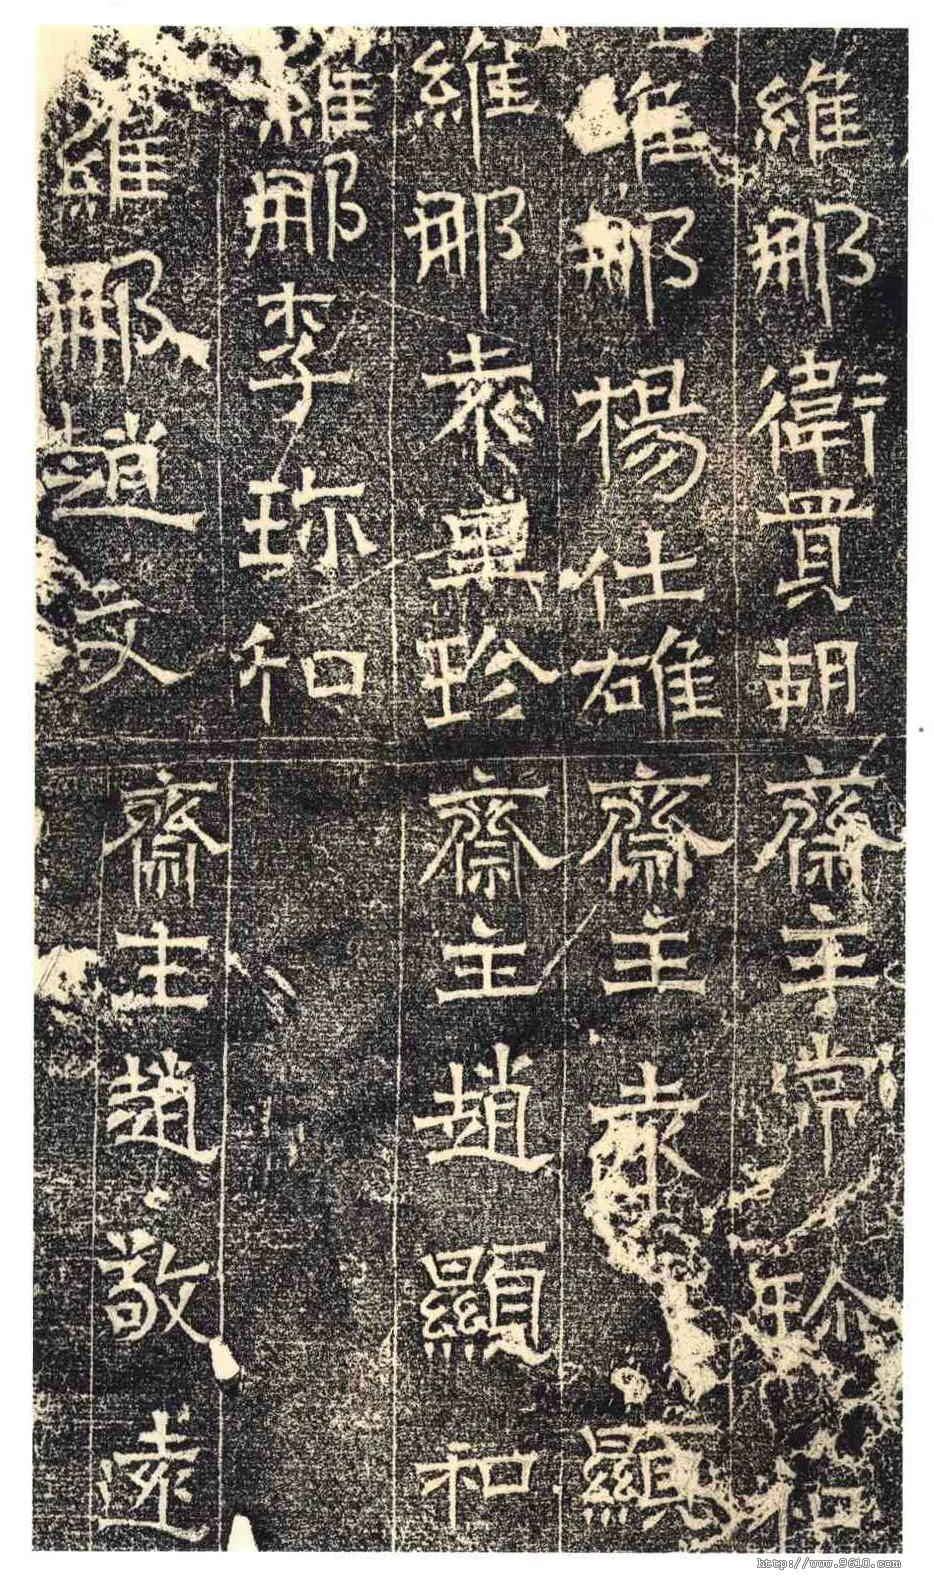 維那衛買胡
維那楊仕雄
維那袁興珍
維那李珎和
維那趙文
齋主常珎和
齋主袁顯
齋主趙顯和
齋主趙敬遠
http://www.9610.com